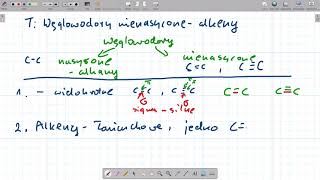 T: Węglowodory nienasycone - alkeny
węglowodory
C-C nasycone nienasycone
- alkany C=C, C≡C
1. - wielokrotne C=C, C≡C C=C C≡C
sigma - silne
2. Alkeny - łańcuchowe, jedno C=